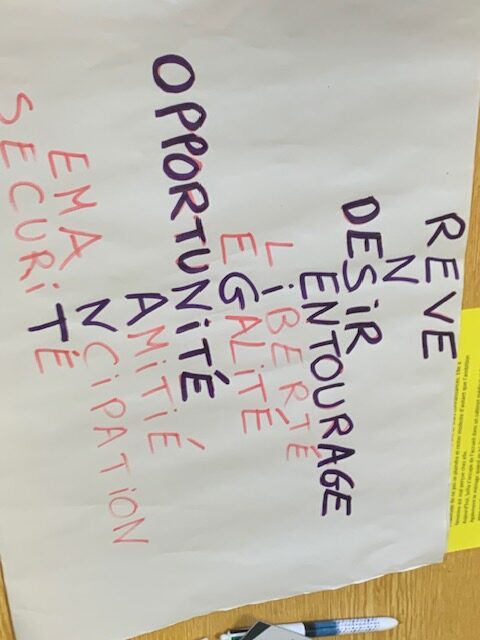 REVE
N
DESIR
ENTOURAGE
LIBERTÉ
EGALITÉ
OPPORTUNITÉ
AMITIÉ
EMANCIPATION
SECURITÉ